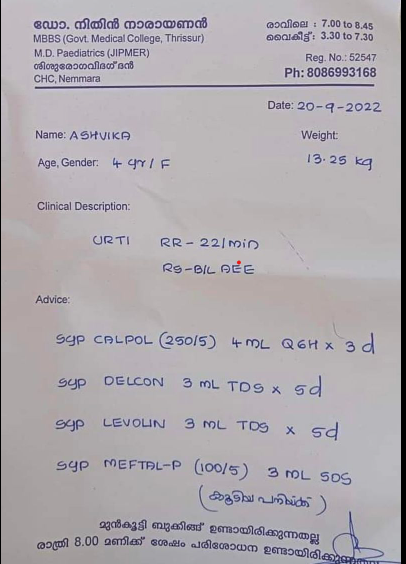 ഡോ. നിതിൻ നാരായണൻ
MBBS (Govt. Medical College, Thrissur)
M.D. Paediatrics (JIPMER)
ശിശുരോഗവിദഗ്ദൻ
CHC, Nemmara
രാവിലെ : 7.00 to 8.45
വൈകീട്ട് : 3.30 to 7.30
Reg. No.: 52547
Ph: 8086993168
Date: 20-9-2022
Name: ASHVIKA
Weight:
Age, Gender: 4 yr / F
13.25 kg
Clinical Description:
URTI RR - 22/min
RS-B/L AEE
Advice:
syp CALPOL (250/5) 4 mL Q6H x 3d
syp DELCON 3 mL TDS x 5d
syp LEVOLIN 3 mL TDS x 5d
syp MEFTAL-P (100/5) 3 mL SOS
(കൂടിയ പനിയ്ക്ക്)
മുൻകൂട്ടി ബുക്കിങ്ങ് ഉണ്ടായിരിക്കുന്നതല്ല
രാത്രി 8.00 മണിക്ക് ശേഷം പരിശോധന ഉണ്ടായിരിക്കുന്നതല്ല